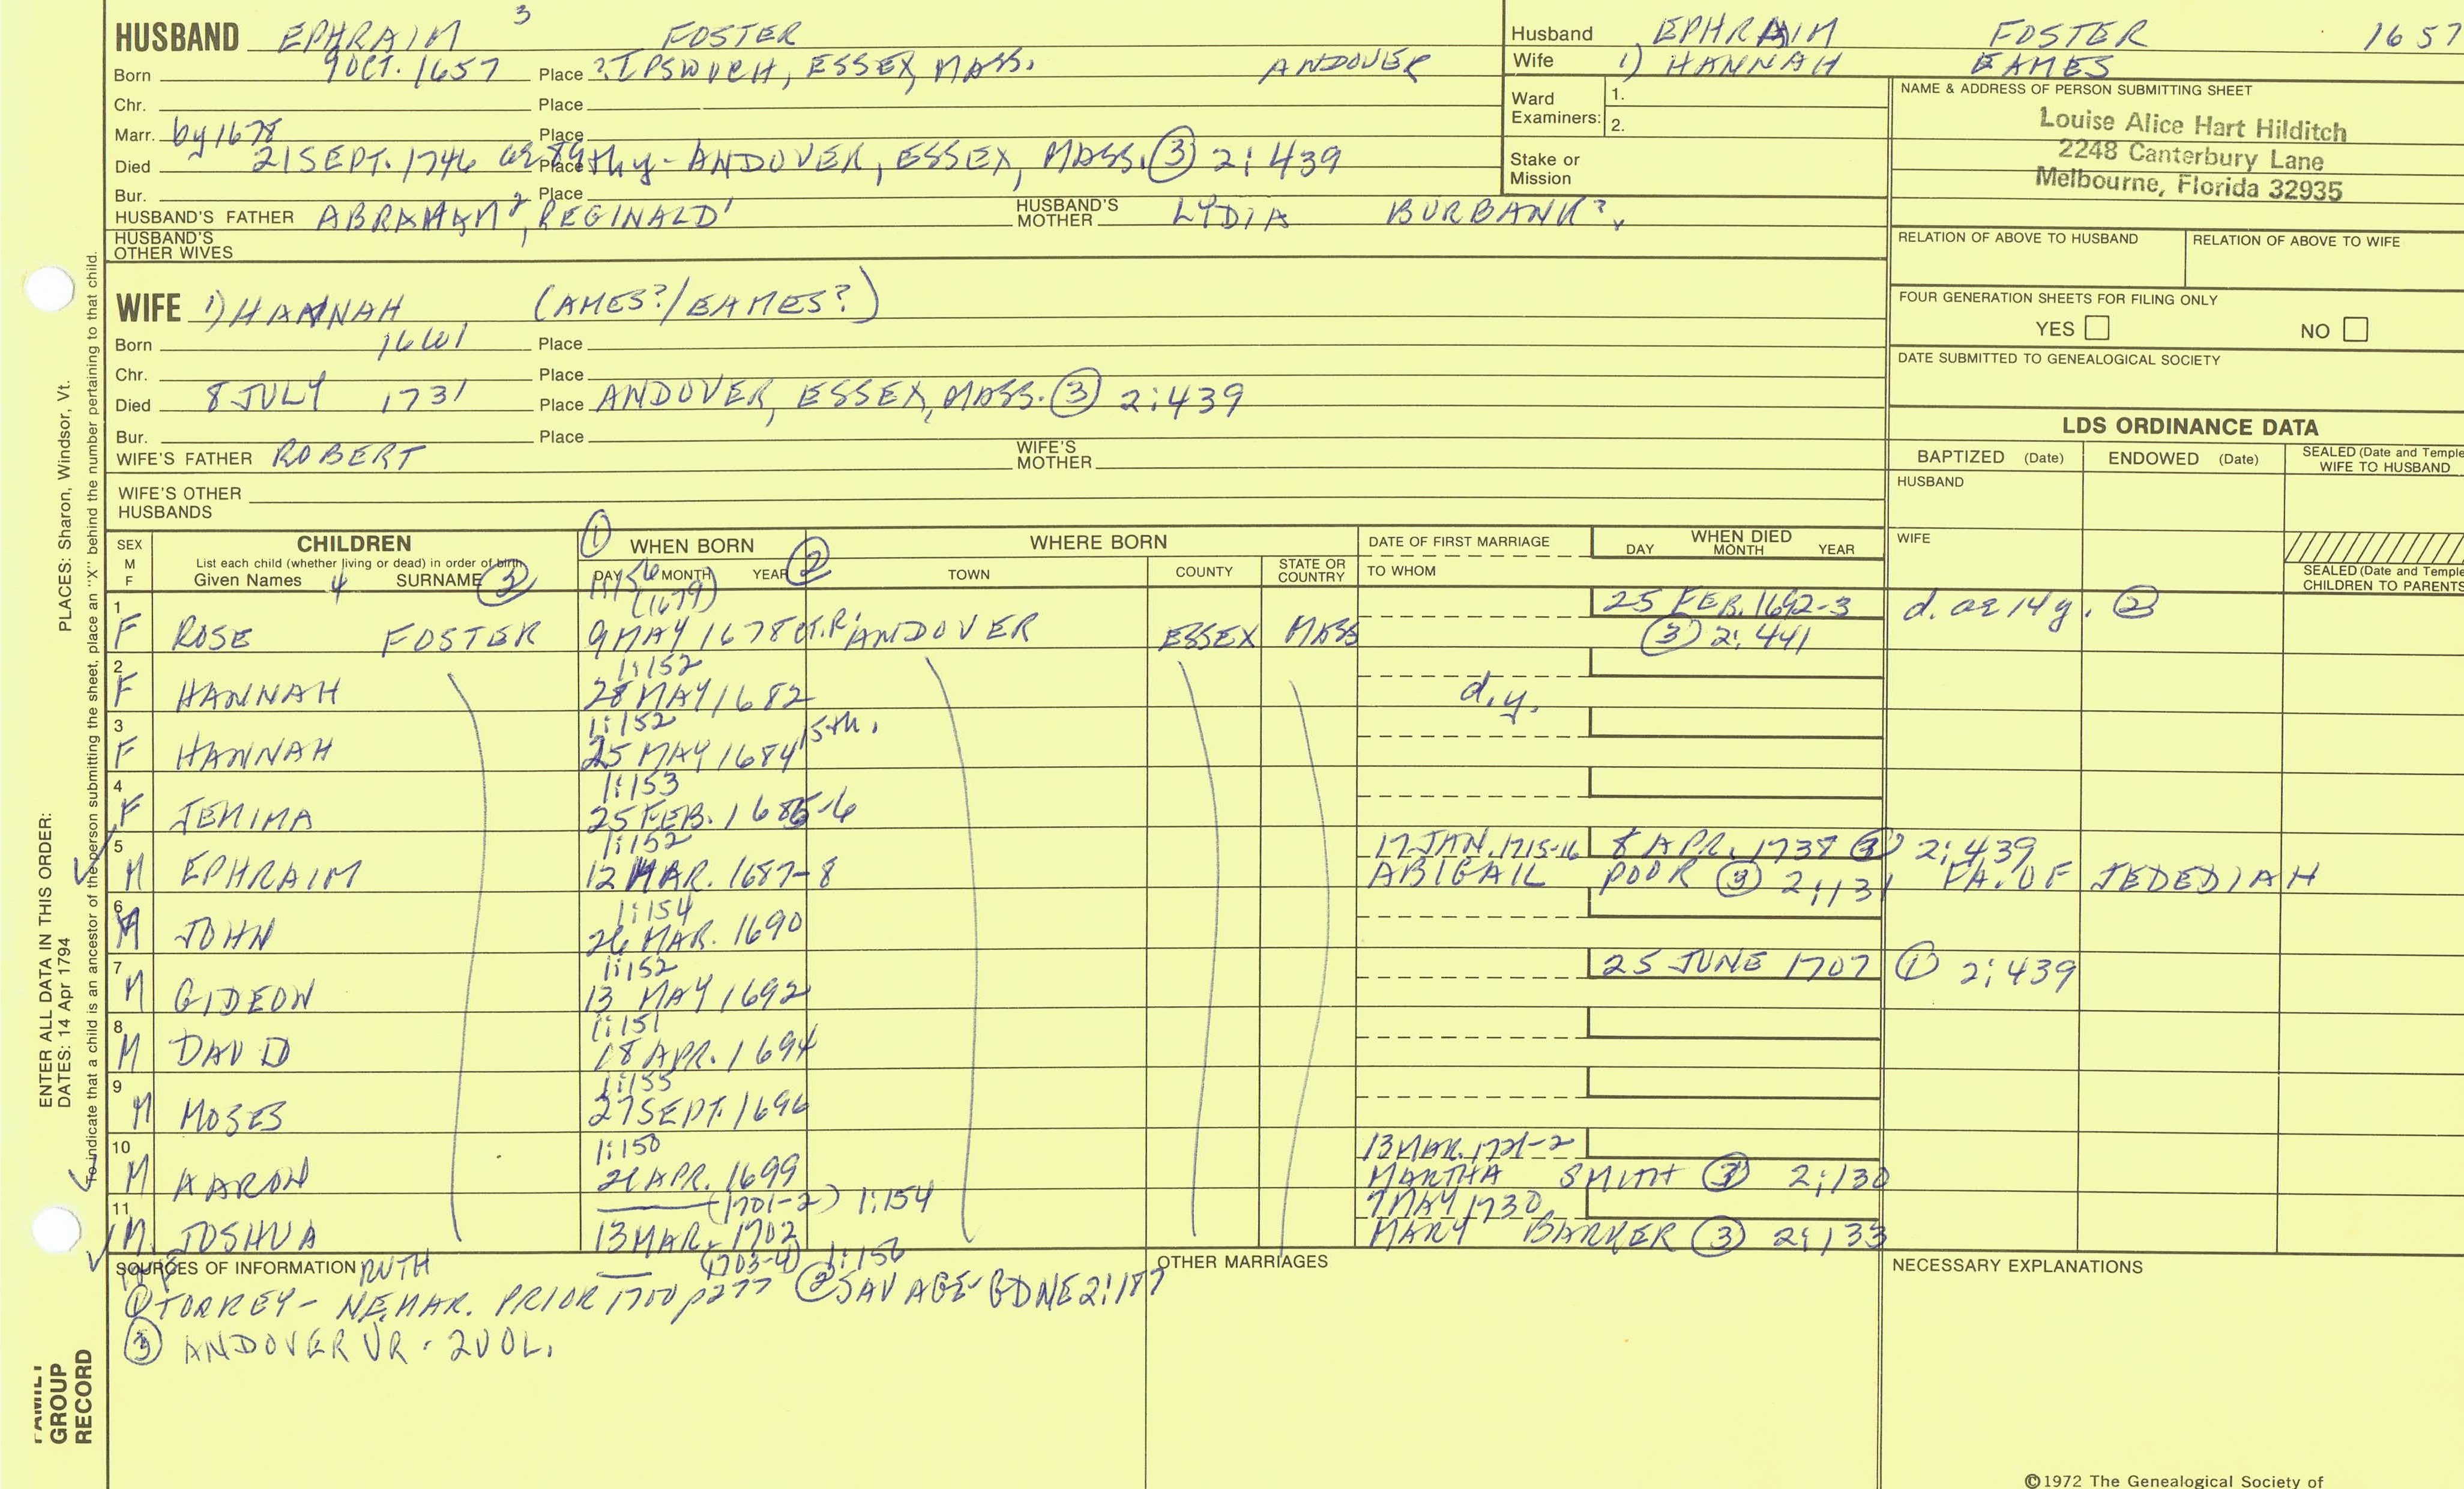 HUSBAND EPHRAIM 3 FOSTER
Born 9 OCT. 1657 Place ? IPSWICH, ESSEX, MASS. ANDOVER
Chr. Place
Marr. by 1678 Place
Died 21 SEPT. 1746 Place ANDOVER, ESSEX, MASS. (3) 2:439
Bur. Place
HUSBAND'S FATHER ABRAHAM 2, REGINALD 1 HUSBAND'S MOTHER LYDIA BURBANK?
HUSBAND'S OTHER WIVES
Husband EPHRAIM FOSTER 1657
Wife 1) HANNAH EAMES
Ward Examiners: 1.
2.
Stake or Mission
NAME & ADDRESS OF PERSON SUBMITTING SHEET
Louise Alice Hart Hilditch
2248 Canterbury Lane
Melbourne, Florida 32935
RELATION OF ABOVE TO HUSBAND RELATION OF ABOVE TO WIFE
FOUR GENERATION SHEETS FOR FILING ONLY
YES NO
DATE SUBMITTED TO GENEALOGICAL SOCIETY
WIFE 1) HANNAH (AMES?/EAMES?)
Born 1661 Place
Chr. Place
Died 8 JULY 1731 Place ANDOVER, ESSEX, MASS. (3) 2:439
Bur. Place
WIFE'S FATHER ROBERT WIFE'S MOTHER
WIFE'S OTHER HUSBANDS
LDS ORDINANCE DATA
BAPTIZED (Date) ENDOWED (Date) SEALED (Date and Temple
WIFE TO HUSBAND
HUSBAND
WIFE
SEALED (Date and Temple
CHILDREN TO PARENTS
SEX M F CHILDREN (1) WHEN BORN (2) WHERE BORN DATE OF FIRST MARRIAGE WHEN DIED
List each child (whether living or dead) in order of birth
Given Names 4 SURNAME (3) DAY MONTH YEAR TOWN COUNTY STATE OR COUNTRY TO WHOM DAY MONTH YEAR
1:156
(1679) 25 FEB. 1692-3 d. ae 14 y. (2)
1 F ROSE FOSTER 9 MAY 1678 ANDOVER ESSEX MASS (3) 2:441
1:152
2 F HANNAH 28 MAY 1682 d.y.
1:152 15th.
3 F HANNAH 25 MAY 1684
1:153
4 F JEMIMA 25 FEB. 1685-6
1:152 17 JAN. 1715-16 8 APR. 1738 (3) 2:439
5 M EPHRAIM 12 MAR. 1687-8 ABIGAIL POOR (3) 2:131 FA. OF JEDEDIAH
1:154
6 M JOHN 26 MAR. 1690
1:152 25 JUNE 1707 (1) 2:439
7 M GIDEON 13 MAY 1692
1:151
8 M DAVID 18 APR. 1694
1:155
9 M MOSES 27 SEPT. 1696
1:150 13 MAR. 1721-2
10 M AARON 21 APR. 1699 MARTHA SMITH (3) 2:130
(1701-2) 1:154 7 MAY 1730
11 M JOSHUA 13 MAR. 1702 MARY BARKER (3) 2:133
RUTH (1703-4) 1:156
SOURCES OF INFORMATION OTHER MARRIAGES NECESSARY EXPLANATIONS
(1) TORREY - NE MAR. PRIOR 1700 p277 (2) SAVAGE- GDNE 2:187
(3) ANDOVER VR. 2 VOL.
©1972 The Genealogical Society of
ENTER ALL DATA IN THIS ORDER:
DATES: 14 Apr 1794 PLACES: Sharon, Windsor, Vt.
To indicate that a child is an ancestor of the person submitting the sheet, place an "X" behind the number pertaining to that child.
FAMILY
GROUP
RECORD